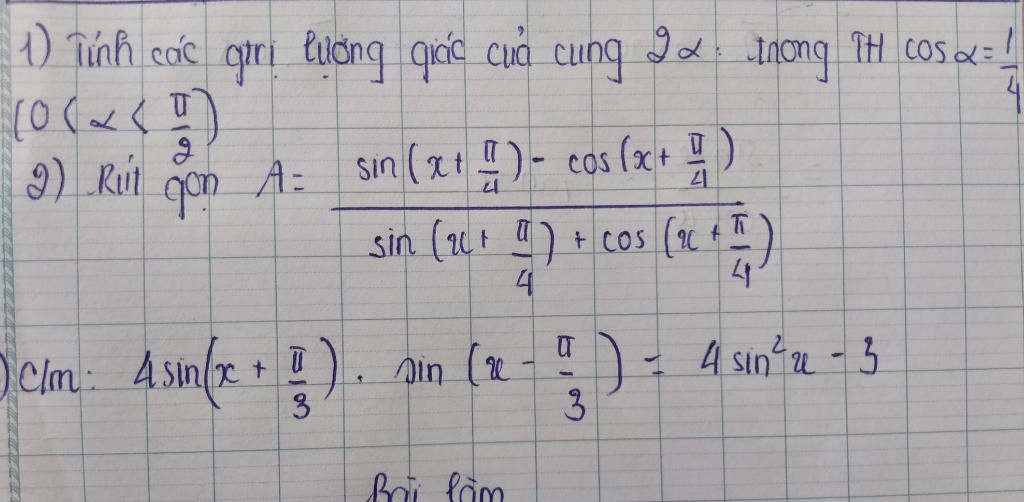 1) Tính các gtrị lượng giác của cung 2α. trong TH cos α = 1/4
(0 < α < π/2)
2) Rút gọn A = (sin(x + π/4) - cos(x + π/4)) / (sin(x + π/4) + cos(x + π/4))
) C/m: 4 sin(x + π/3) . sin(x - π/3) = 4 sin²x - 3
Bài làm